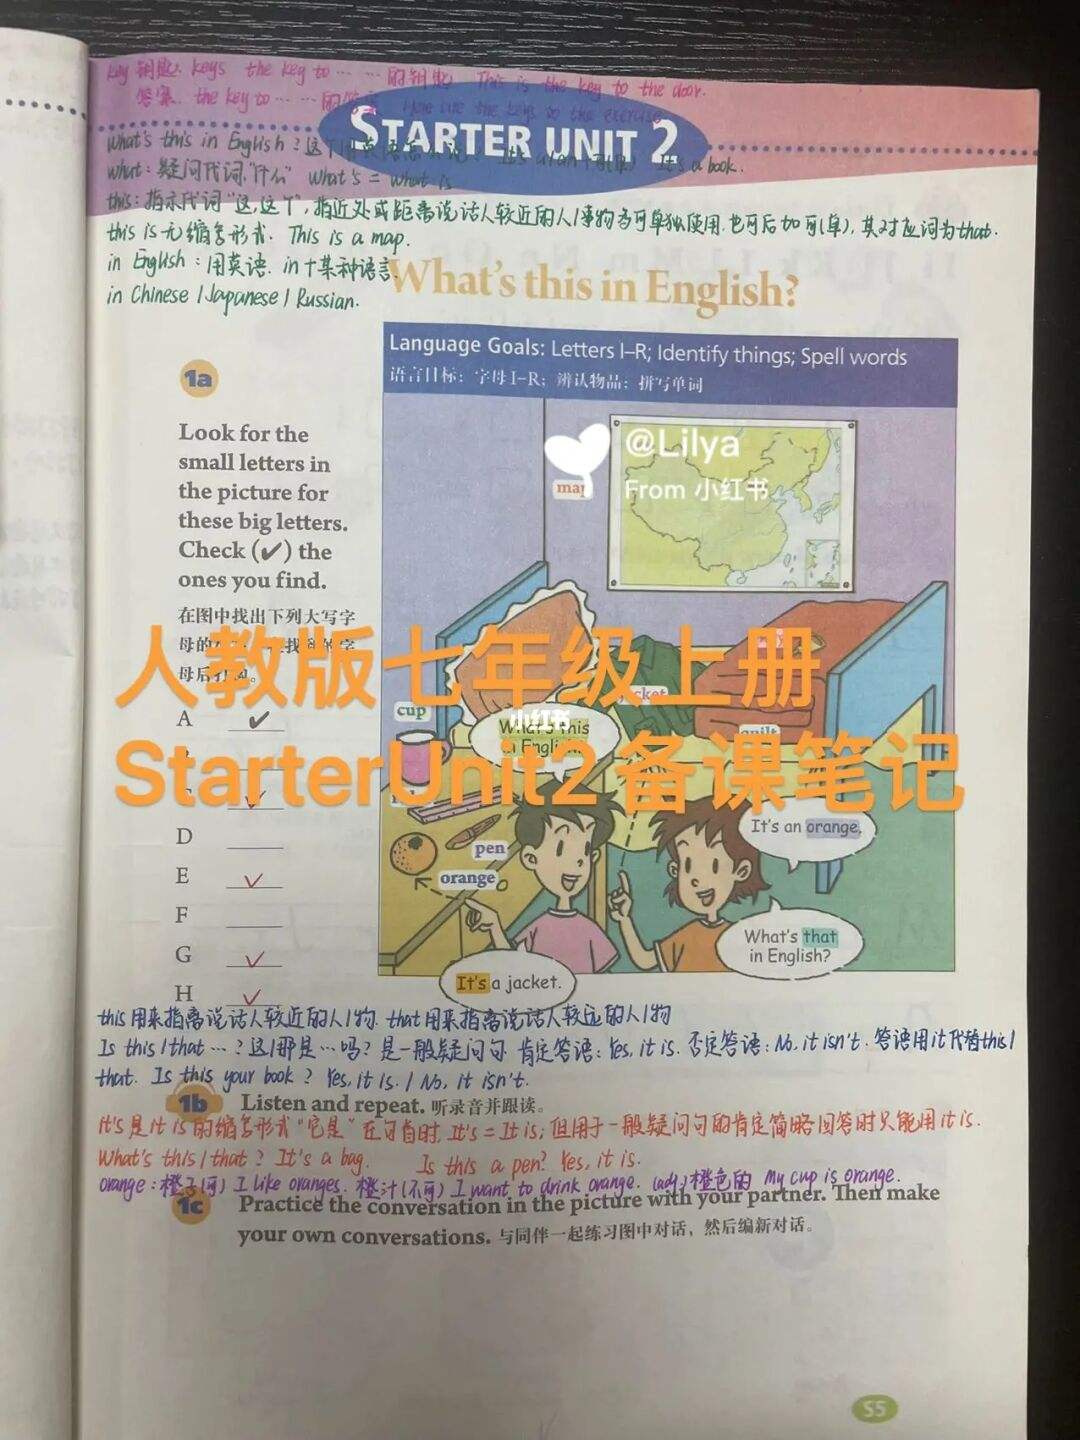 key 钥匙. keys the key to … …的钥匙 This is the key to the door.
答案. the key to … …的答案 Here are the keys to the exercise
STARTER UNIT 2
What's this in English? It's a book.
what: 疑问代词,"什么" What's = what is
this: 指示代词"这,这个", 指近处或距离说话人较近的人/事物 可单独使用,也可后加可(单), 其对应词为that.
this is 无缩写形式. This is a map.
in English: 用英语. in+某种语言
in Chinese / Japanese / Russian.
What's this in English?
Language Goals: Letters I–R; Identify things; Spell words
语言目标：字母 I–R；辨认物品；拼写单词
1a
Look for the
small letters in
the picture for
these big letters.
Check (✔) the
ones you find.
在图中找出下列大写字
母的
母后
@Lilya
From 小红书
map
人教版七年级上册
StarterUnit2备课笔记
小红书
cup
What's this
in English?
quilt
pen
orange
It's an orange.
What's that
in English?
It's a jacket.
A ✔
D
E ✓
F
G ✓
H ✓
this用来指离说话人较近的人/物. that用来指离说话人较远的人/物
Is this/that …? 这/那是…吗? 是一般疑问句. 肯定答语: Yes, it is. 否定答语: No, it isn't. 答语用it代替this/
that. Is this your book? Yes, it is. / No, it isn't.
1b Listen and repeat. 听录音并跟读。
it's是it is的缩写形式"它是"在句首时, It's = It is; 但用于一般疑问句的肯定简略回答时只能用it is.
What's this/that? It's a bag. Is this a pen? Yes, it is.
orange: 橙子(可) I like oranges. 橙汁(不可) I want to drink orange. (adj.)橙色的 My cup is orange.
1c Practice the conversation in the picture with your partner. Then make
your own conversations. 与同伴一起练习图中对话，然后编新对话。
S5